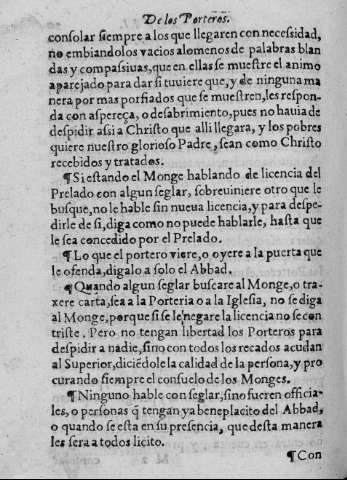 De los Porteros.
consolar siempre a los que llegaren con necessidad,
no embiandolos vacios alomenos de palabras blan
das y compassiuas, que en ellas se muestre el animo
aparejado para dar si tuuiere que, y de ninguna ma
nera por mas porfiados que se muestren, les respon-
da con aspereça, o desabrimiento, pues no hauia de
despidir assi a Christo que alli llegara, y los pobres
quiere nuestro glorioso Padre, sean como Christo
recebidos y tratados.
¶Si estando el Monge hablando de licencia del
Prelado con algun seglar, sobreuiniere otro que le
busque, no le hable sin nueua licencia, y para despe-
dirle de si, diga como no puede hablarle, hasta que
le sea concedido por el Prelado.
¶Lo que el portero viere, o oyere a la puerta que
le ofenda, digalo a solo el Abbad.
¶Quando algun seglar buscare al Monge, o tra-
xere carta, sea a la Porteria o a la Iglesia, no se diga
al Monge, porque si se le negare la licencia no se con
triste. Pero no tengan libertad los Porteros para
despidir a nadie, sino con todos los recados acudan
al Superior, diciēdole la calidad de la persona, y pro
curando siempre el consuelo de los Monges.
¶Ninguno hable con seglar, sino fueren officia-
les, o personas q̃ tengan ya beneplacito del Abbad,
o quando se esta en su presencia, que desta manera
les sera a todos licito.
¶Con